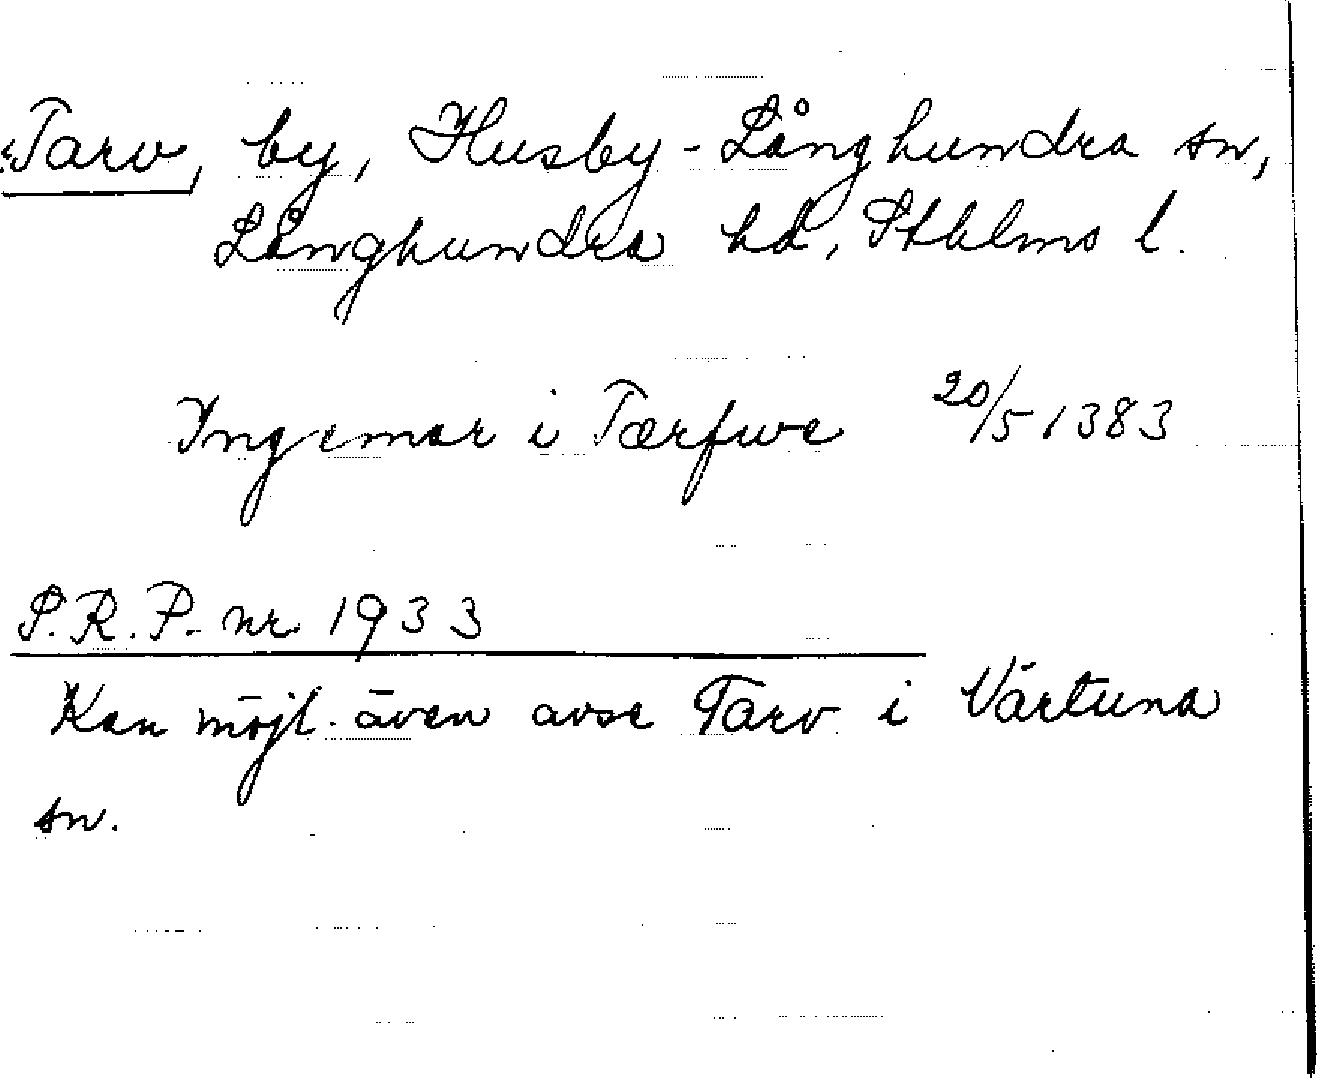 Tarv, by, Husby-Långhundra sn,
Långhundra hd, Sthlms l.
Ingemar i Tærfwe 20/5 1383
S.R.P. nr 1933
Kan möjl. även avse Tarv i Vårtuna
sn.